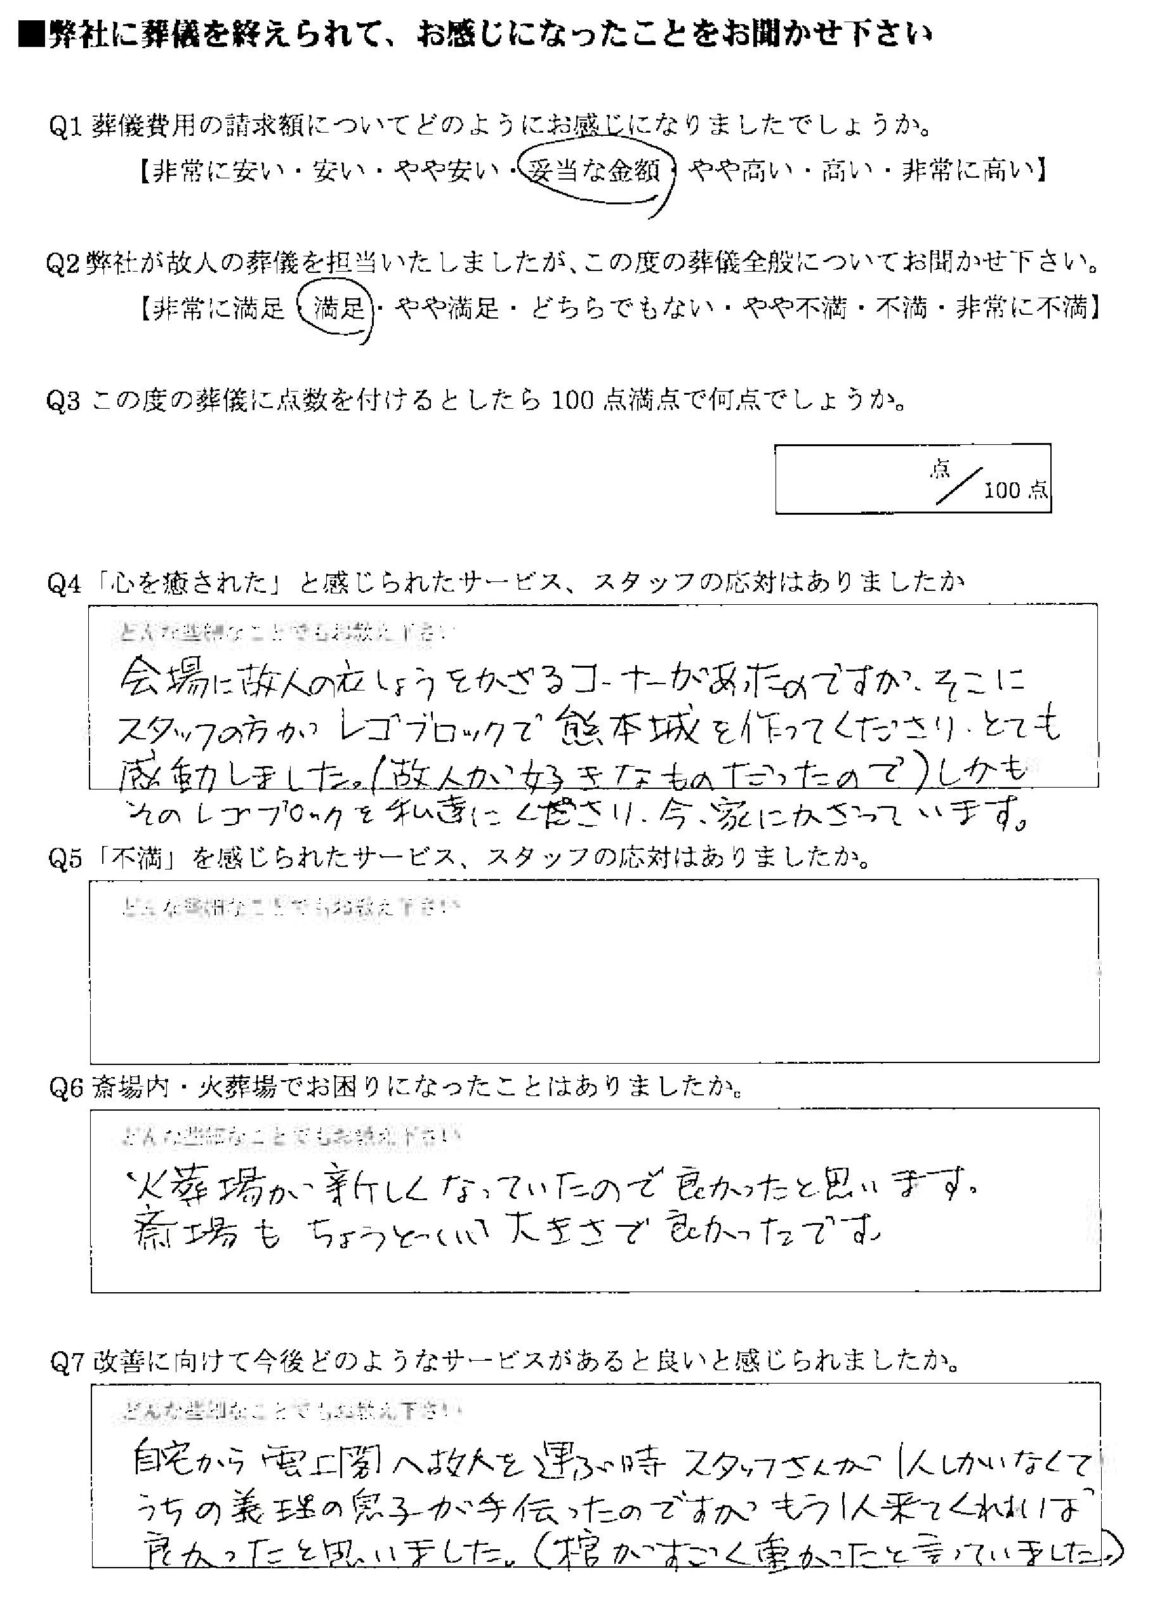 ■弊社に葬儀を終えられて、お感じになったことをお聞かせ下さい
Q1 葬儀費用の請求額についてどのようにお感じになりましたでしょうか。
【非常に安い・安い・やや安い・妥当な金額・やや高い・高い・非常に高い】
Q2 弊社が故人の葬儀を担当いたしましたが、この度の葬儀全般についてお聞かせ下さい。
【非常に満足・満足・やや満足・どちらでもない・やや不満・不満・非常に不満】
Q3 この度の葬儀に点数を付けるとしたら 100 点満点で何点でしょうか。
点／100 点
Q4「心を癒された」と感じられたサービス、スタッフの応対はありましたか
どんな些細なことでもお教え下さい
会場に故人の衣しょうをかざるコーナーがあったのですが、そこに
スタッフの方が レゴブロックで 熊本城を作ってくださり、とても
感動しました。(故人が好きなものだったので)しかも
そのレゴブロックを私達にくださり、今、家にかざっています。
Q5「不満」を感じられたサービス、スタッフの応対はありましたか。
どんな些細なことでもお教え下さい
Q6 斎場内・火葬場でお困りになったことはありましたか。
どんな些細なことでもお教え下さい
火葬場が新しくなっていたので良かったと思います。
斎場も ちょうどいい 大きさで 良かったです。
Q7 改善に向けて今後どのようなサービスがあると良いと感じられましたか。
どんな些細なことでもお教え下さい
自宅から 雲上閣へ故人を 運ぶ時 スタッフさんが 1人しかいなくて
うちの義理の息子が手伝ったのですが もう1人来てくれれば
良かったと思いました。(棺がすごく重かったと言っていました。)